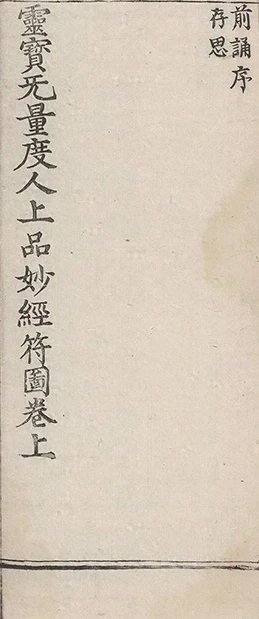 前誦序
存思
靈寳旡量度人上品妙經符圖卷上